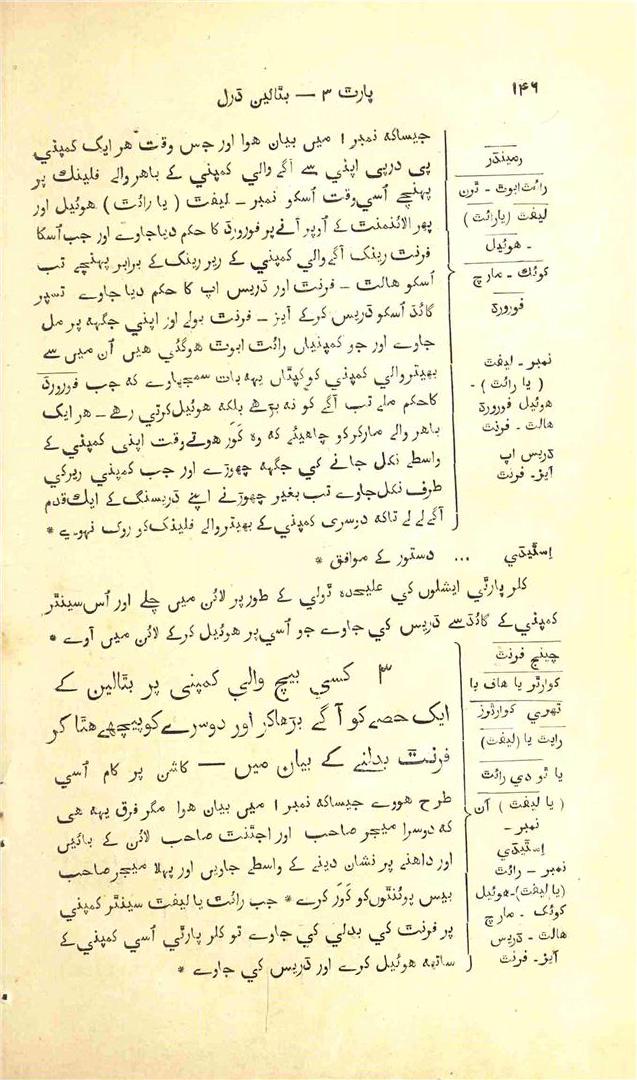 ۱۴۶
پارٹ ۳ — بٹالین ڈرل
جیساکہ نمبر ۱ میں بیان ہوا اور جس وقت ہر ایک کمپنی
پی درپی اپنی سے آگے والی کمپنی کے باہر والے فلینک پر
پہنچے اُسي وقت اُسکو نمبر – لیفٹ ( یا رائٹ ) هوئیل اور
پھر الائنمنٹ کے اُوپر آنے پر فورورڈ کا حکم دیا جاوے اور جب اُسکا
فرنٹ رینک آگے والی کمپنی کے ریر رینک کے برابر پہنچے تب
اُسکو هالٹ – فرنٹ اور ڈریس اپ کا حکم دیا جاوے تسپر
گائڈ اُسکو ڈریس کرکے آیز – فرنٹ بولے اور اپنی جگہہ پر مل
جاوے اور جو کمپنیاں رائٹ ابوٹ هوگئی هیں اُن میں سے
بھیتر والی کمپنی کو کپتان یہہ بات سمجھاوے کہ جب فورورڈ
کا حکم ملے تب آگے کو نہ بڑھے بلکہ هوئیل کرتی رهے – هر ایک
باهر والے مارکر کو چاهیئے کہ وہ کَوَر هوتے وقت اپنی کمپنی کے
واسطے نکل جانے کي جگہہ چھوڑے اور جب کمپنی ریر کي
طرف نکل جاوے تب بغیر چھوڑنے اپنے ڈریسنگ کے ایک قدم
آگے لے لے تاکہ دوسری کمپنی کے بھیتر والے فلینک کو روک نہووے *
رمینڈر
رائٹ ابوٹ – ٹرن
لیفٹ (یا رائٹ)
– هوئیل
کوئک – مارچ
فورورڈ
نمبر – لیفٹ
( یا رائٹ ) –
هوئیل فورورڈ
هالٹ – فرنٹ
ڈریس اپ
آیز – فرنٹ
اِسٹیڈي ... دستور کے موافق *
کلر پارٹي ایشلوں کي علیحدہ ٹولي کے طور پر لائن میں چلے اور اُس سینٹر
کمپنی کے گائڈ سے ڈریس کي جاوے جو اُسي پر هوئیل کرکے لائن میں آوے *
۳ کسي بیچ والي کمپنی پر بٹالین کے
ایک حصے کو آگے بڑھاکر اور دوسرے کو پیچھے هٹا کر
فرنٹ بدلنے کے بیان میں — کاشن پر کام اُسي
طرح هووے جیساکہ نمبر ۱ میں بیان هوا مگر فرق یہہ هی
کہ دوسرا میجر صاحب اور اجٹنٹ صاحب لائن کے بائیں
اور داهنے پر نشان دینے کے واسطے جاویں اور پہلا میجر صاحب
بیس پوئنٹوں کو کَوَر کرے * جب رائٹ یا لیفٹ سینٹر کمپنی
پر فرنٹ کی بدلی کی جاوے تو کلر پارٹي اُسي کمپنی کے
ساتھہ هوئیل کرے اور ڈریس کي جاوے *
چینج فرنٹ
کوارٹر یا هاف یا
تھري کوارٹرز
رایٹ یا (لیفٹ)
یا ٹو دي رائٹ
( یا لیفٹ ) اُن
نمبر –
اِسٹیڈي
نمبر – رائٹ
(یا لیفٹ)–هوئیل
کوئک – مارچ
هالٹ – ڈریس
آیز – فرنٹ